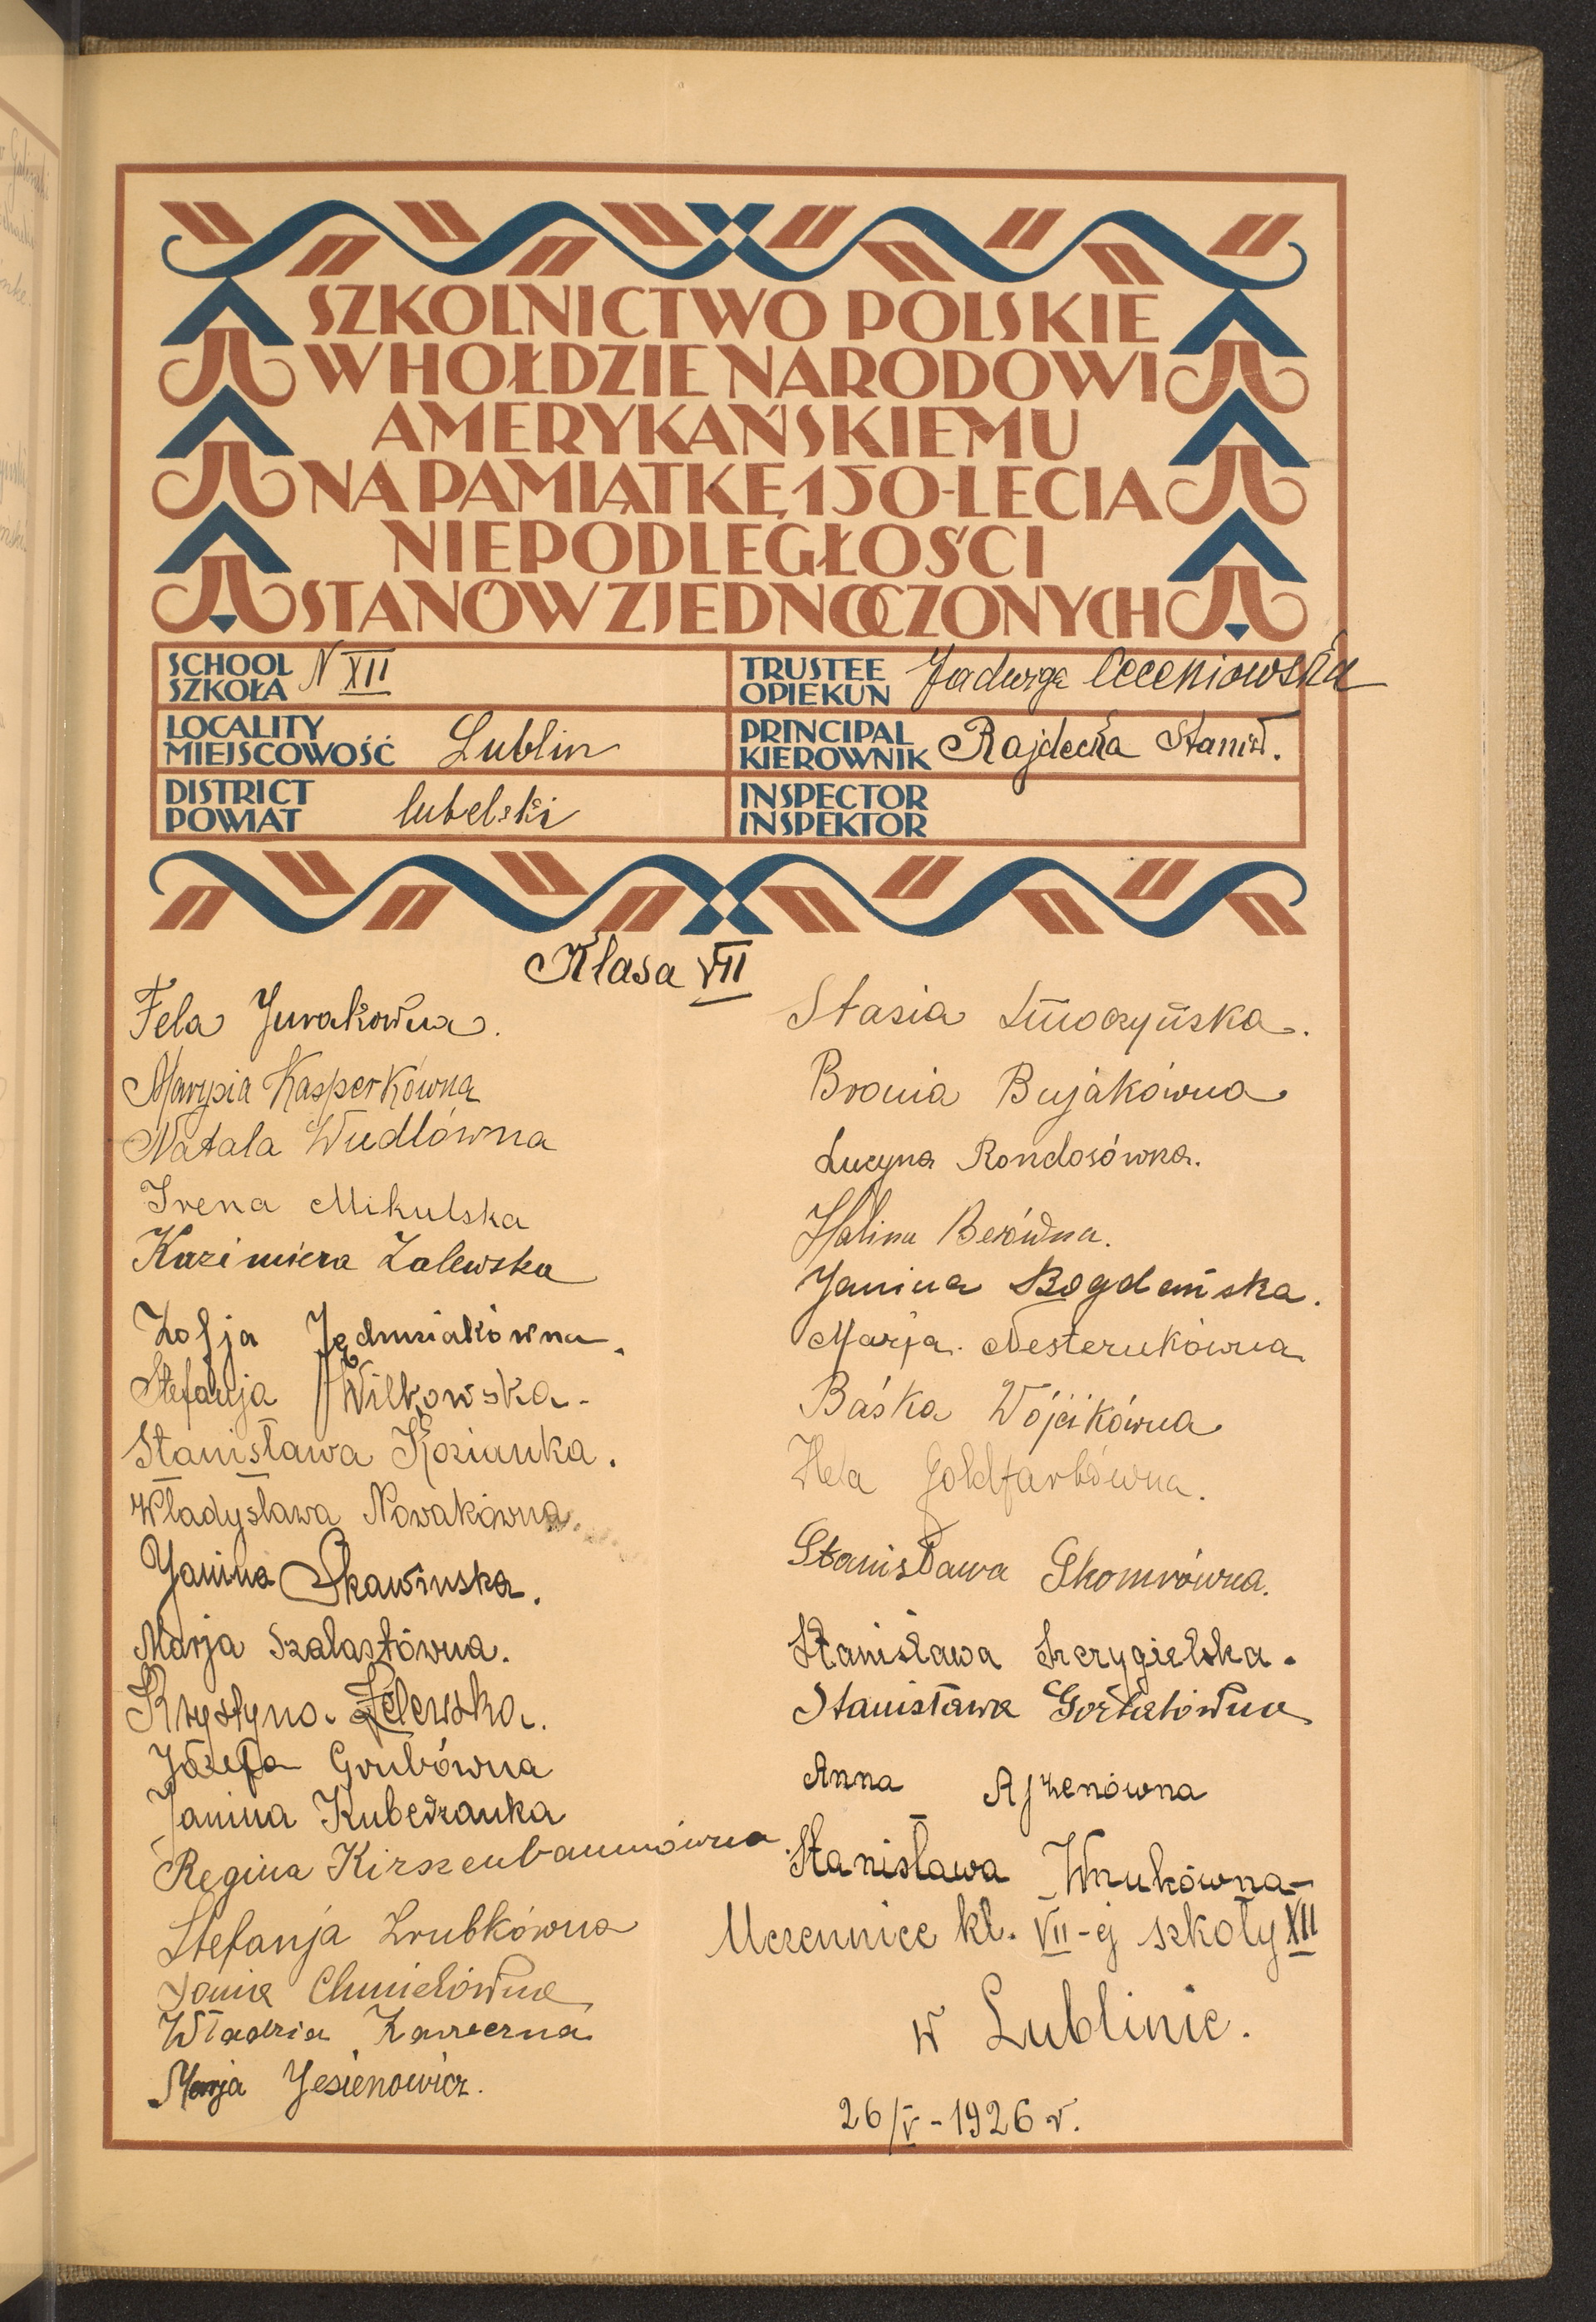 SZKOLNICTWO POLSKIE
W HOŁDZIE NARODOWI
AMERYKAŃSKIEMU
NA PAMIĄTKĘ 150-LECIA
NIEPODLEGŁOŚCI
STANÓW ZJEDNOCZONYCH
SCHOOL
SZKOŁA N XII
TRUSTEE
OPIEKUN Jadwiga
LOCALITY
MIEJSCOWOŚĆ Lublin
PRINCIPAL
KIEROWNIK Rajdecka Stanisł.
DISTRICT
POWIAT lubelski
INSPECTOR
INSPEKTOR
Klasa VII
Fela Jurakówna.
Marysia Kasperkówna
Natala Wudlówna
Irena Mikulska
Kazimiera Zalewska
Zofja Jędrusiakówna.
Stefanja Wilkowska.
Stanisława Kozianka.
Władysława Nowakówna.
Janina Skawińska.
Marja Szalastówna.
Krystyna Zalewska.
Józefa Grubówna
Janina Kubedzanka
Regina Kirszenbaumówna
Stefanja Zrubkówna
Janina Chmielówna
Władzia Kawecrna
Marja Jesienowicz.
Stasia Tłuczyńska.
Bronia Bujakówna
Lucyna Rondosówna.
Halina Berówna.
Janina Bogdańska.
Marja Nesterukówna
Baśka Wójcikówna
Hela Goldfarbówna.
Stanisława Skomrówna.
Stanisława Szczygielska.
Stanisława Gortatówna
Anna Ajzenówna
Stanisława Wnukówna
Uczennice kl. VII-ej szkoły XII
w Lublinie.
26/V-1926 r.